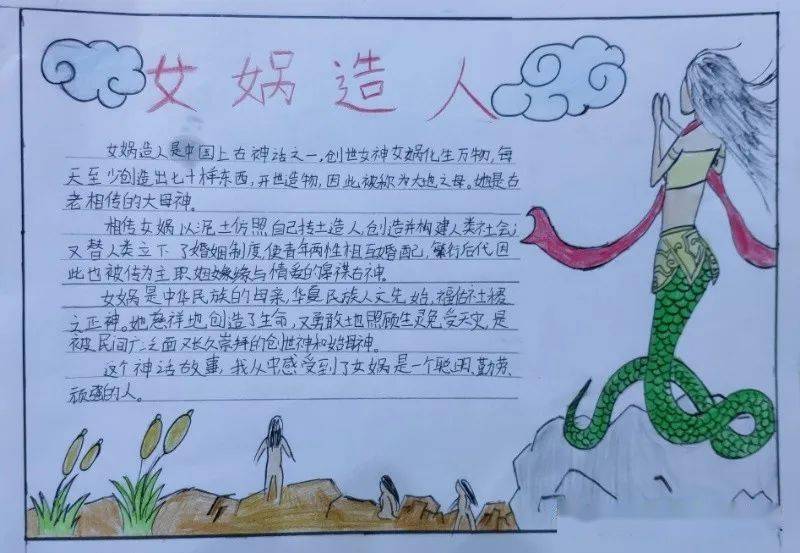 女娲造人
女娲造人是中国上古神话之一，创世女神女娲化生万物，每
天至少创造出七十样东西，开世造物，因此被称为大地之母。她是古
老相传的大母神。
相传女娲以泥土仿照自己抟土造人，创造并构建人类社会；
又替人类立下了婚姻制度，使青年两性相互婚配，繁衍后代，因
此也被传为主职姻缘与情爱的古神。
女娲是中华民族的母亲，华夏民族人文先始，福佑社稷
之正神。她慈祥地创造了生命，又勇敢地照顾生灵免受天灾，是
被民间广泛而又长久崇拜的创世神和始母神。
这个神话故事，我从中感受到了女娲是一个聪明、勤劳、
顽强的人。